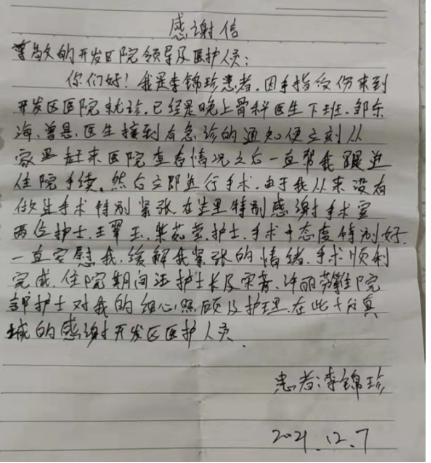 感谢信
尊敬的开发区院领导及医护人员：
你们好！我是李锦珍患者，因手指受伤来到
开发区医院就诊，已经是晚上骨科医生下班，邹东
海、曾昙，医生接到有急诊的通知便立刻从
家里赶来医院查看情况之后一直帮我跟进
住院手续，然后立即进行手术，由于我从来没有
做过手术特别紧张在这里特别感谢手术室
两位护士，王翠玉、朱芯莹护士，手术中态度特别好
一直安慰我，缓解我紧张的情绪，手术顺利
完成，住院期间汪护士长及宋青、许丽萍住院
部护士对我的细心照顾及护理，在此十分真
诚的感谢开发区医护人员
患者：李锦珍
2021.12.7